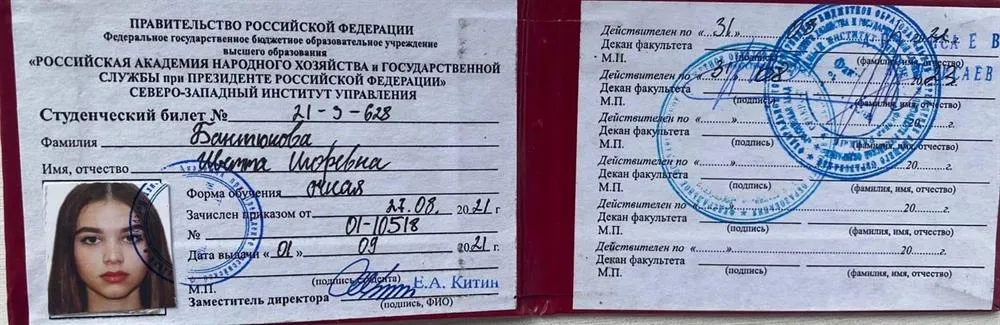 ПРАВИТЕЛЬСТВО РОССИЙСКОЙ ФЕДЕРАЦИИ
Федеральное государственное бюджетное образовательное учреждение
высшего образования
«РОССИЙСКАЯ АКАДЕМИЯ НАРОДНОГО ХОЗЯЙСТВА и ГОСУДАРСТВЕННОЙ
СЛУЖБЫ при ПРЕЗИДЕНТЕ РОССИЙСКОЙ ФЕДЕРАЦИИ»
СЕВЕРО-ЗАПАДНЫЙ ИНСТИТУТ УПРАВЛЕНИЯ
Студенческий билет № 21-Э-628
Фамилия Бантюкова
Имя, отчество Иветта Игоревна
Форма обучения очная
Зачислен приказом от 27.08. 2021 г.
№ 01-10518
Дата выдачи «01» 09 2021 г.
(подпись студента)
М.П.
Заместитель директора Е.А. Китин
(подпись, ФИО)
Действителен по «31.
Декан факультета
М.П. (подпись) (фамилия, имя, отчество)
Действителен по «31» 08 2023 г.
Декан факультета
М.П. (подпись) (фамилия, имя, отчество)
Действителен по «...» 20 г.
Декан факультета
М.П. (подпись) (фамилия, имя, отчество)
Действителен по «...» 20 г.
Декан факультета
М.П. (подпись) (фамилия, имя, отчество)
Действителен по «...» 20 г.
Декан факультета
М.П. (подпись) (фамилия, имя, отчество)